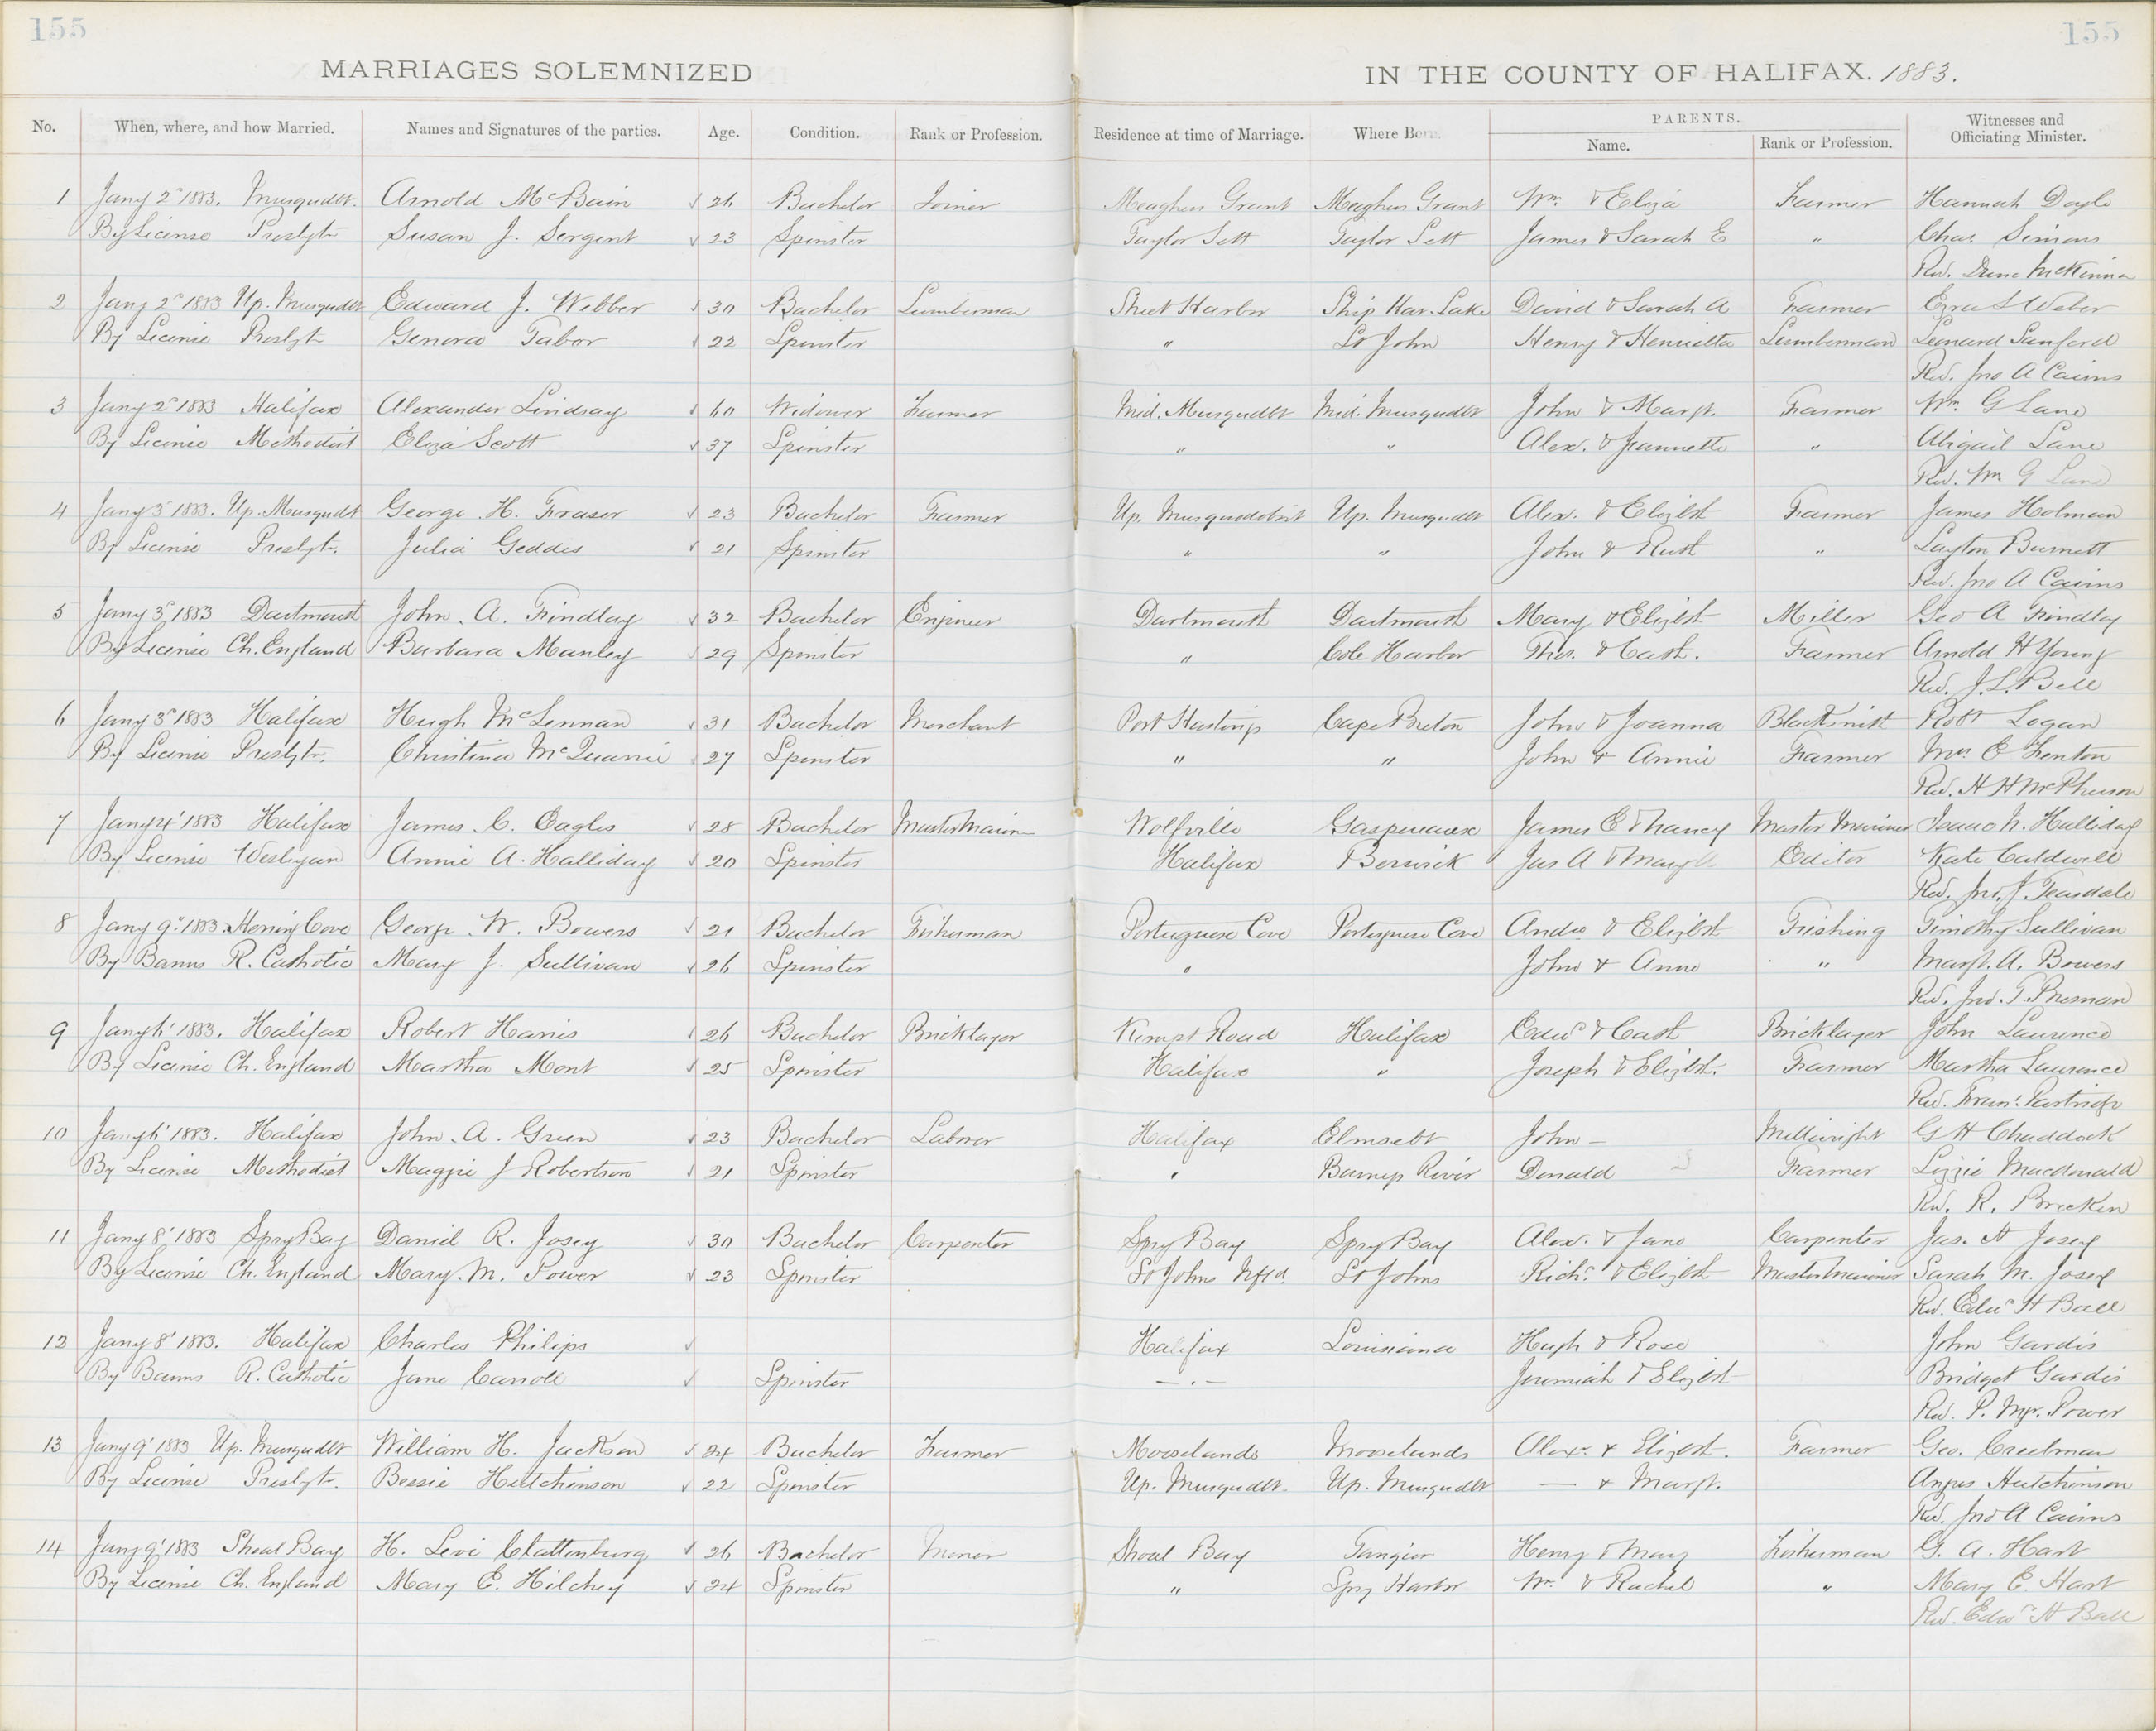 155
155
MARRIAGES SOLEMNIZED IN THE COUNTY OF HALIFAX. 1883.
No. When, where, and how Married. Names and Signatures of the parties. Age. Condition. Rank or Profession. Residence at time of Marriage. Where Born. PARENTS. Name. Rank or Profession. Witnesses and Officiating Minister.
1 Jany 2" 1883. Musqudbt. Arnold McBain √ 26 Bachelor Joiner Meaghers Grant Meaghers Grant Wm. & Eliza Farmer Hannah Dogle
By License Presbytr Susan J. Sergent √ 23 Spinster Taylor Sett Taylor Sett James & Sarah E " Chas. Simons
Rev. McKinnon
2 Jany 2" 1883 Up. Musqudbt Edward J. Webber √ 30 Bachelor Lumberman Sheet Harbor Ship Har. Lake David & Sarah A Farmer Ezra S Weber
By License Presbyt Genora Tabor √ 22 Spinster " St John Henry & Henrietta Lumberman Leonard Sanford
Rev. Jno A Cairns
3 Jany 2" 1883 Halifax Alexander Lindsay √ 60 Widower Farmer Mid. Musqudbt Mid. Musqudbt John & Margt. Farmer Wm. G Lane
By License Methodist Eliza Scott √ 37 Spinster " " Alex. & Jeannette " Abigail Lane
Rev. Wm. G Lane
4 Jany 3" 1883. Up. Musqudbt George H. Fraser √ 23 Bachelor Farmer Up. Musquodobit Up. Musqudbt Alex. & Elizbth Farmer James Holman
By License Presbytr. Julia Geddes √ 21 Spinster " " John & Ruth " Layton Burnett
Rev. Jno A Cairns
5 Jany 3" 1883 Dartmouth John. A. Findlay √ 32 Bachelor Engineer Dartmouth Dartmouth Mary & Elizbth Miller Geo A Findlay
By License Ch. England Barbara Manley √ 29 Spinster " Cole Harbor Thos. & Cath. Farmer Arnold H Young
Rev. J. L. Bell
6 Jany 3" 1883 Halifax Hugh McLennan √ 31 Bachelor Merchant Port Hastings Cape Breton John & Joanna Blacksmith Robt Logan
By License Presbytr. Christina McQuarrie √ 27 Spinster " " John & Annie Farmer Mrs. E Fenton
Rev. H H McPherson
7 Jany 4' 1883 Halifax James. C. Eagles √ 28 Bachelor Master Mariner Wolfville Gaspereaux James E & Nancy Master Mariner Isaac N. Halliday
By License Wesleyan Annie A. Halliday √ 20 Spinster Halifax Berwick Jas A & Mary Editor Kate Caldwell
Rev. Jno. J. Teasdale
8 Jany 9" 1883. Herring Cove George. W. Bowers √ 21 Bachelor Fisherman Portuguese Cove Portuguese Cove Andw & Elizbth Fishing Timothy Sullivan
By Banns R. Catholic Mary J. Sullivan √ 26 Spinster " John & Anne " Margt. A. Bowers
Rev. Jno. T.
9 Jany 6' 1883. Halifax Robert Harris √ 26 Bachelor Bricklayer Kempt Road Halifax Edwd & Cath Bricklayer John Laurence
By License Ch. England Martha Mont √ 25 Spinster Halifax " Joseph & Elizbth. Farmer Martha Laurence
Rev. Frans. Partridge
10 Jany 6' 1883. Halifax John. A. Green √ 23 Bachelor Laborer Halifax Elmsett John – Millwright G H Chaddock
By License Methodist Maggie J Robertson √ 21 Spinster " Barneys River Donald Farmer Lizzie Macdonald
Rev. R. Brecken
11 Jany 8' 1883 Spry Bay Daniel R. Josey √ 30 Bachelor Carpenter Spry Bay Spry Bay Alex. & Jane Carpenter Jas. H Josey
By License Ch. England Mary. M. Power √ 23 Spinster St Johns Nfld. St Johns Richd & Elizbth Master Mariner Sarah M. Josey
Rev. Edwd H Ball
12 Jany 8' 1883. Halifax Charles Philips √ Halifax Louisiana Hugh & Rose John Gardis
By Banns R. Catholic Jane Carroll √ Spinster – . – Jeremiah & Elizbth Bridget Gardis
Rev. P. Power
13 Jany 9' 1883 Up. Musqudbt William H. Jackson √ 24 Bachelor Farmer Mooselands Mooselands Alexr. & Elizbth. Farmer Geo. Creelman
By License Presbytr. Bessie Hutchinson √ 22 Spinster Up. Musqudbt. Up. Musqudbt — & Margt. Angus Hutchinson
Rev. Jno A Cairns
14 Jany 9' 1883 Shoal Bay H. Levi Clattenburg √ 26 Bachelor Minor Shoal Bay Tangier Henry & Mary Fisherman G. A. Hart
By License Ch. England Mary E. Hilchey √ 24 Spinster " Spry Harbor Wm. & Rachel " Mary E. Hart
Rev. Edwd H Ball